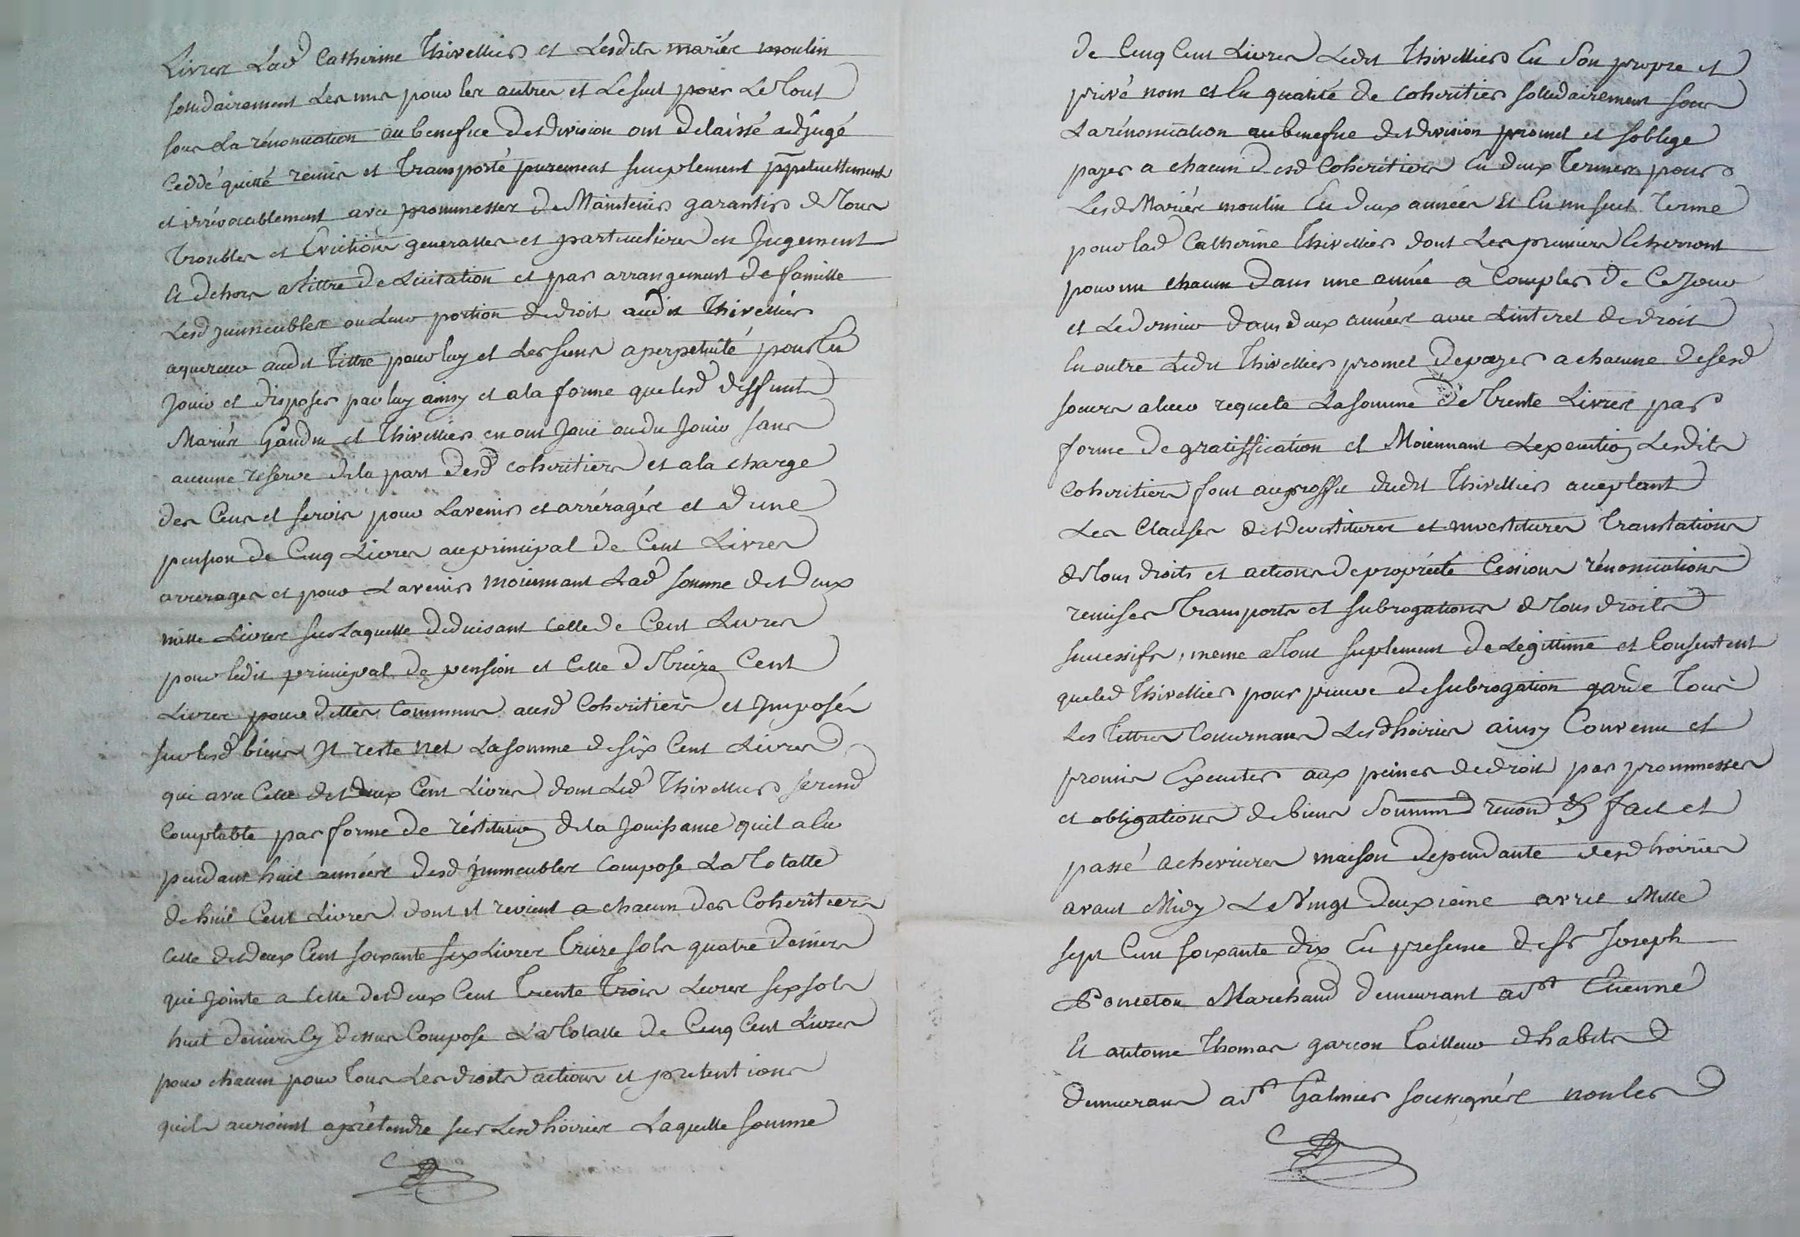 Livres Lad Catherine Thivellier et Lesdits mariés moulin
solidairement Les uns pour les autres et Le seul pour Le Tout
sous La rénonciation au benefice de division ont delaissé adjugé
Ceddé quitté remis et transporté purement simplement perpetuellement
et irrévocablement avec prommesses de Maintenir garantir de Tous
Troubles et Evictions generalles et particulieres en Jugement
Et dehors a tittre de Licitation et par arrangement de famille
Lesd immeubles ou Leur portion de droit audit Thivellier
aquereur audit tittre pour luy et Les siens a perpetuité pour En
Jouir et disposer par luy ainsy et a la forme que lesd deffunts
Mariés Gandin et Thivellier en ont Joui ou du Jouir sans
aucune réserve de la part desd coheritiers et a la charge
des Cens et servis pour Lavenir et arréragés et d'une
pension de Cinq Livres au principal de Cent Livres
arrerages et pour Lavenir moiennant Lad somme de deux
mille Livres sur Laquelle deduisant celle de Cent Livres
pour ledit principal de pension et Celle de Treize Cent
Livres pour dettes Communes ausd Coheritiers et Imposés
sur lesd biens Il reste net La somme de six Cent Livres
qui avec Celle de deux Cent Livres dont Led Thivellier se rend
Comptable par forme de réstitution de la Jouissance quil a Eu
pendant huit années desd Immeubles Compose La Totalle
de huit Cent Livres dont il revient a chacun des Coheritiers
Celle de deux Cent soixante six Livres Treize sols quatre deniers
qui Jointe a Celle de deux Cent Trente Trois Livres six sols
huit deniers Cy dessus Compose La Totalle de Cinq Cent Livres
pour chacun pour Tous Les droits actions et pretentions
quils auroient a prétendre sur Lesd hoiries Laquelle somme
de Cinq Cent Livres Ledit Thivellier En Son propre et
privé nom et En qualité de coheritier sollidairement sous
La rénonciation au benefice de division promet et soblige
payer a chacun desd Coheritiers En deux Termes pour
Lesd Mariés moulin En deux années Et En un seul Terme
pour lad Catherine Thivellier dont Les premiers Echerront
pour un chacun dans une année a Compter de Ce Jour
et Le dernier dans deux années avec Linteret de droit
En outre Ledit Thivellier promet de payer a chacune de sesd
soeurs a leur requete La somme de Trente Livres par
forme de gratiffication et Moiennant Lexecution Lesdits
Coheritiers font au proffit dudit Thivellier acceptant
Les Clauses de devestitures et investitures Translations
de Tous droits et actions de propriété Cessions rénonciations
remises Transports et subrogations de Tous droits
successifs, meme a Tout suplement de Legittime et Consentent
que led Thivellier pour preuve de subrogation garde Tous
Les tittres Concernans Lesd hoiries ainsy Convenu et
promis Executer aux peines de droit par prommesses
et obligations de biens soumis renon &c fait et
passé a chevrieres maison dependante desd hoiries
avant Midy Le Vingt deuxieme avril Mille
sept Cent soixante dix En presence de sr Joseph
Ponceton Marchand demeurant a St Etienne
Et antoine Thomas garçon Tailleur dhabits
demeurans a St Galmier soussignés non les d